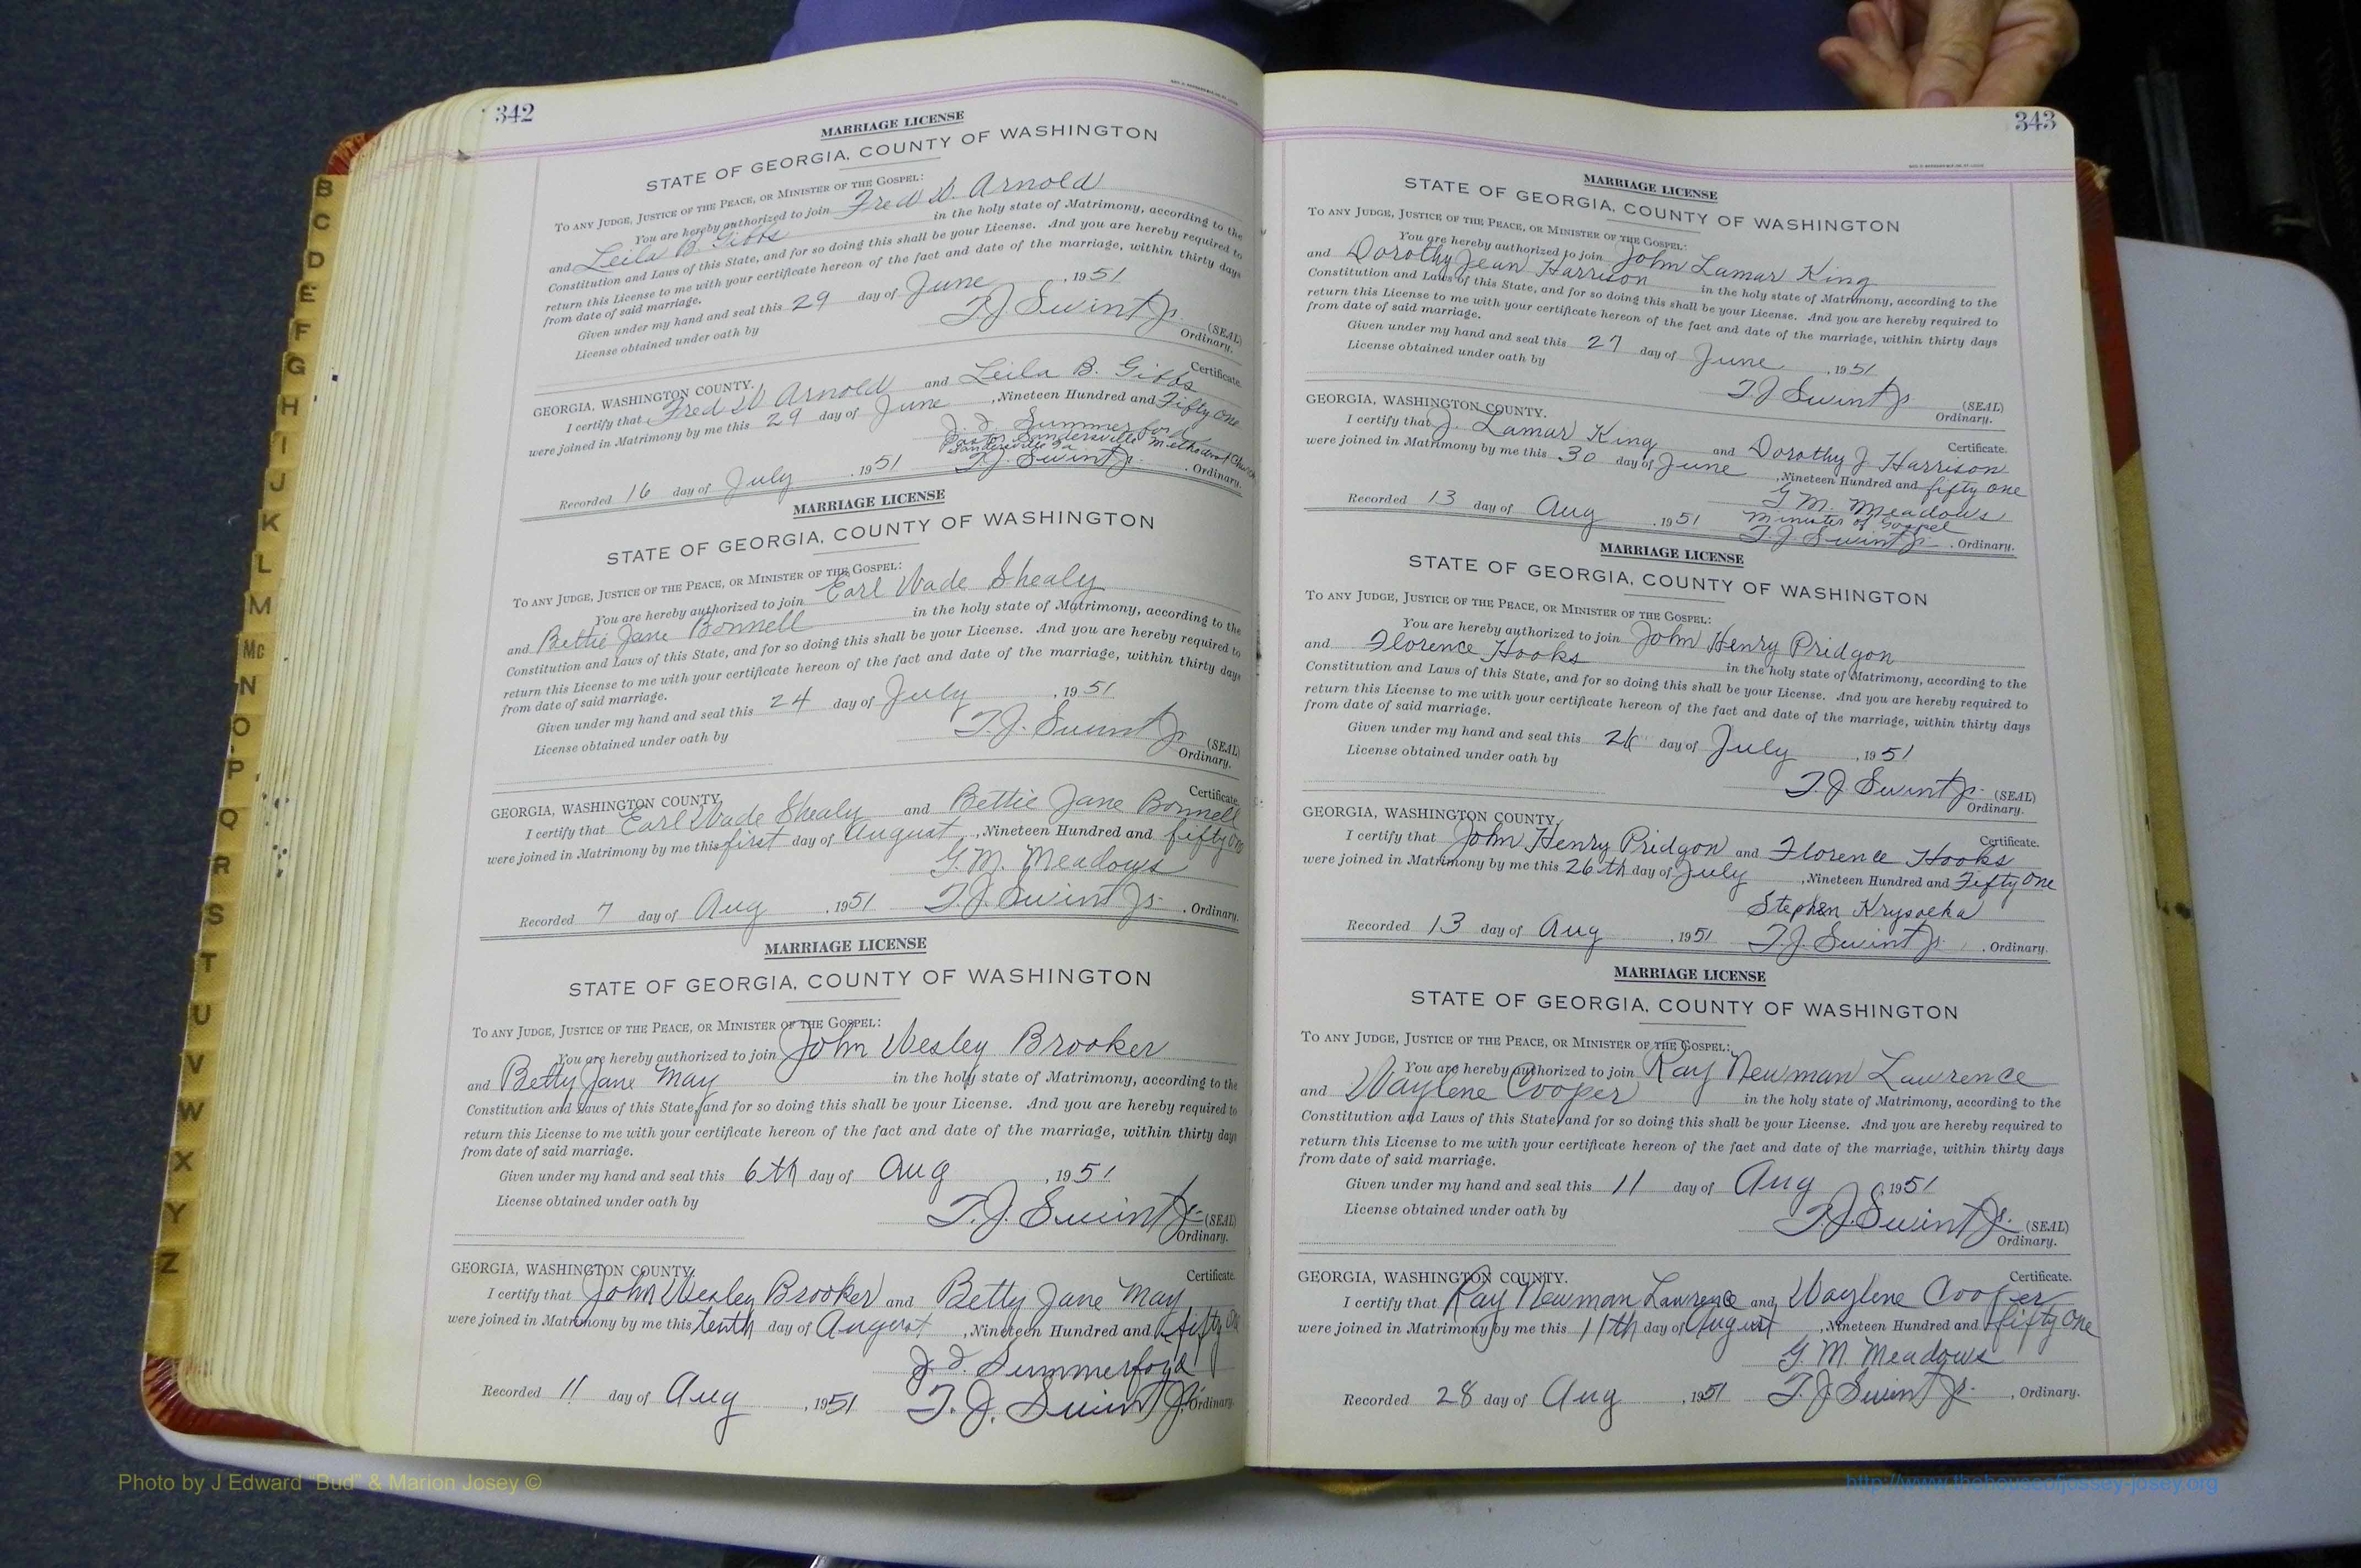 342
MARRIAGE LICENSE
STATE OF GEORGIA, COUNTY OF WASHINGTON
TO ANY JUDGE, JUSTICE OF THE PEACE, OR MINISTER OF THE GOSPEL:
You are hereby authorized to join Fred W. Arnold
and Leila B. Gibbs in the holy state of Matrimony, according to the
Constitution and Laws of this State, and for so doing this shall be your License. And you are hereby required to
return this License to me with your certificate hereon of the fact and date of the marriage, within thirty days
from date of said marriage.
Given under my hand and seal this 29 day of June, 1951
License obtained under oath by T.J. Swint Jr. (SEAL)
Ordinary.
Certificate.
GEORGIA, WASHINGTON COUNTY.
I certify that Fred W Arnold and Leila B. Gibbs
were joined in Matrimony by me this 29 day of June, Nineteen Hundred and Fifty One
J. D. Summerford
Pastor Sandersville Methodist Church
Sandersville Ga
Recorded 16 day of July, 1951 T.J. Swint Jr., Ordinary.
MARRIAGE LICENSE
STATE OF GEORGIA, COUNTY OF WASHINGTON
TO ANY JUDGE, JUSTICE OF THE PEACE, OR MINISTER OF THE GOSPEL:
You are hereby authorized to join Earl Wade Shealy
and Bettie Jane Bonnell in the holy state of Matrimony, according to the
Constitution and Laws of this State, and for so doing this shall be your License. And you are hereby required to
return this License to me with your certificate hereon of the fact and date of the marriage, within thirty days
from date of said marriage.
Given under my hand and seal this 24 day of July, 1951
License obtained under oath by T.J. Swint Jr (SEAL)
Ordinary.
Certificate.
GEORGIA, WASHINGTON COUNTY.
I certify that Earl Wade Shealy and Bettie Jane Bonnell
were joined in Matrimony by me this first day of August, Nineteen Hundred and fifty One
G.M. Meadows
Recorded 7 day of Aug, 1951 T.J. Swint Jr., Ordinary.
MARRIAGE LICENSE
STATE OF GEORGIA, COUNTY OF WASHINGTON
TO ANY JUDGE, JUSTICE OF THE PEACE, OR MINISTER OF THE GOSPEL:
You are hereby authorized to join John Wesley Brooker
and Betty Jane May in the holy state of Matrimony, according to the
Constitution and Laws of this State, and for so doing this shall be your License. And you are hereby required to
return this License to me with your certificate hereon of the fact and date of the marriage, within thirty days
from date of said marriage.
Given under my hand and seal this 6th day of Aug, 1951
License obtained under oath by T.J. Swint Jr. (SEAL)
Ordinary.
Certificate.
GEORGIA, WASHINGTON COUNTY.
I certify that John Wesley Brooker and Betty Jane May
were joined in Matrimony by me this tenth day of August, Nineteen Hundred and fifty One
J. D. Summerford
Recorded 11 day of Aug, 1951 T. J. Swint Jr. Ordinary.
343
MARRIAGE LICENSE
STATE OF GEORGIA, COUNTY OF WASHINGTON
TO ANY JUDGE, JUSTICE OF THE PEACE, OR MINISTER OF THE GOSPEL:
You are hereby authorized to join John Lamar King
and Dorothy Jean Harrison in the holy state of Matrimony, according to the
Constitution and Laws of this State, and for so doing this shall be your License. And you are hereby required to
return this License to me with your certificate hereon of the fact and date of the marriage, within thirty days
from date of said marriage.
Given under my hand and seal this 27 day of June, 1951
License obtained under oath by T J Swint Jr (SEAL)
Ordinary.
GEORGIA, WASHINGTON COUNTY.
Certificate.
I certify that J. Lamar King and Dorothy J Harrison
were joined in Matrimony by me this 30 day of June, Nineteen Hundred and fifty one
G M. Meadows
Minister of Gospel
Recorded 13 day of Aug, 1951 T. J. Swint Jr, Ordinary.
MARRIAGE LICENSE
STATE OF GEORGIA, COUNTY OF WASHINGTON
TO ANY JUDGE, JUSTICE OF THE PEACE, OR MINISTER OF THE GOSPEL:
You are hereby authorized to join John Henry Pridgon
and Florence Hooks in the holy state of Matrimony, according to the
Constitution and Laws of this State, and for so doing this shall be your License. And you are hereby required to
return this License to me with your certificate hereon of the fact and date of the marriage, within thirty days
from date of said marriage.
Given under my hand and seal this 26 day of July, 1951
License obtained under oath by T.J. Swint Jr. (SEAL)
Ordinary.
GEORGIA, WASHINGTON COUNTY.
Certificate.
I certify that John Henry Pridgon and Florence Hooks
were joined in Matrimony by me this 26th day of July, Nineteen Hundred and Fifty One
Stephen
Recorded 13 day of Aug, 1951 T.J. Swint Jr., Ordinary.
MARRIAGE LICENSE
STATE OF GEORGIA, COUNTY OF WASHINGTON
TO ANY JUDGE, JUSTICE OF THE PEACE, OR MINISTER OF THE GOSPEL:
You are hereby authorized to join Ray Newman Lawrence
and Waylene Cooper in the holy state of Matrimony, according to the
Constitution and Laws of this State, and for so doing this shall be your License. And you are hereby required to
return this License to me with your certificate hereon of the fact and date of the marriage, within thirty days
from date of said marriage.
Given under my hand and seal this 11 day of Aug, 1951
License obtained under oath by T.J. Swint Jr. (SEAL)
Ordinary.
GEORGIA, WASHINGTON COUNTY.
Certificate.
I certify that Ray Newman Lawrence and Waylene Cooper
were joined in Matrimony by me this 11th day of August, Nineteen Hundred and fifty One
G. M. Meadows
Recorded 28 day of Aug, 1951 T.J. Swint Jr., Ordinary.
B
C
D
E
F
G
H
I
J
K
L
M
Mc
N
O
P
Q
R
S
T
U
V
W
X
Y
Z
Photo by J Edward “Bud” & Marion Josey ©
http://www.thehouseofjossey-josey.org